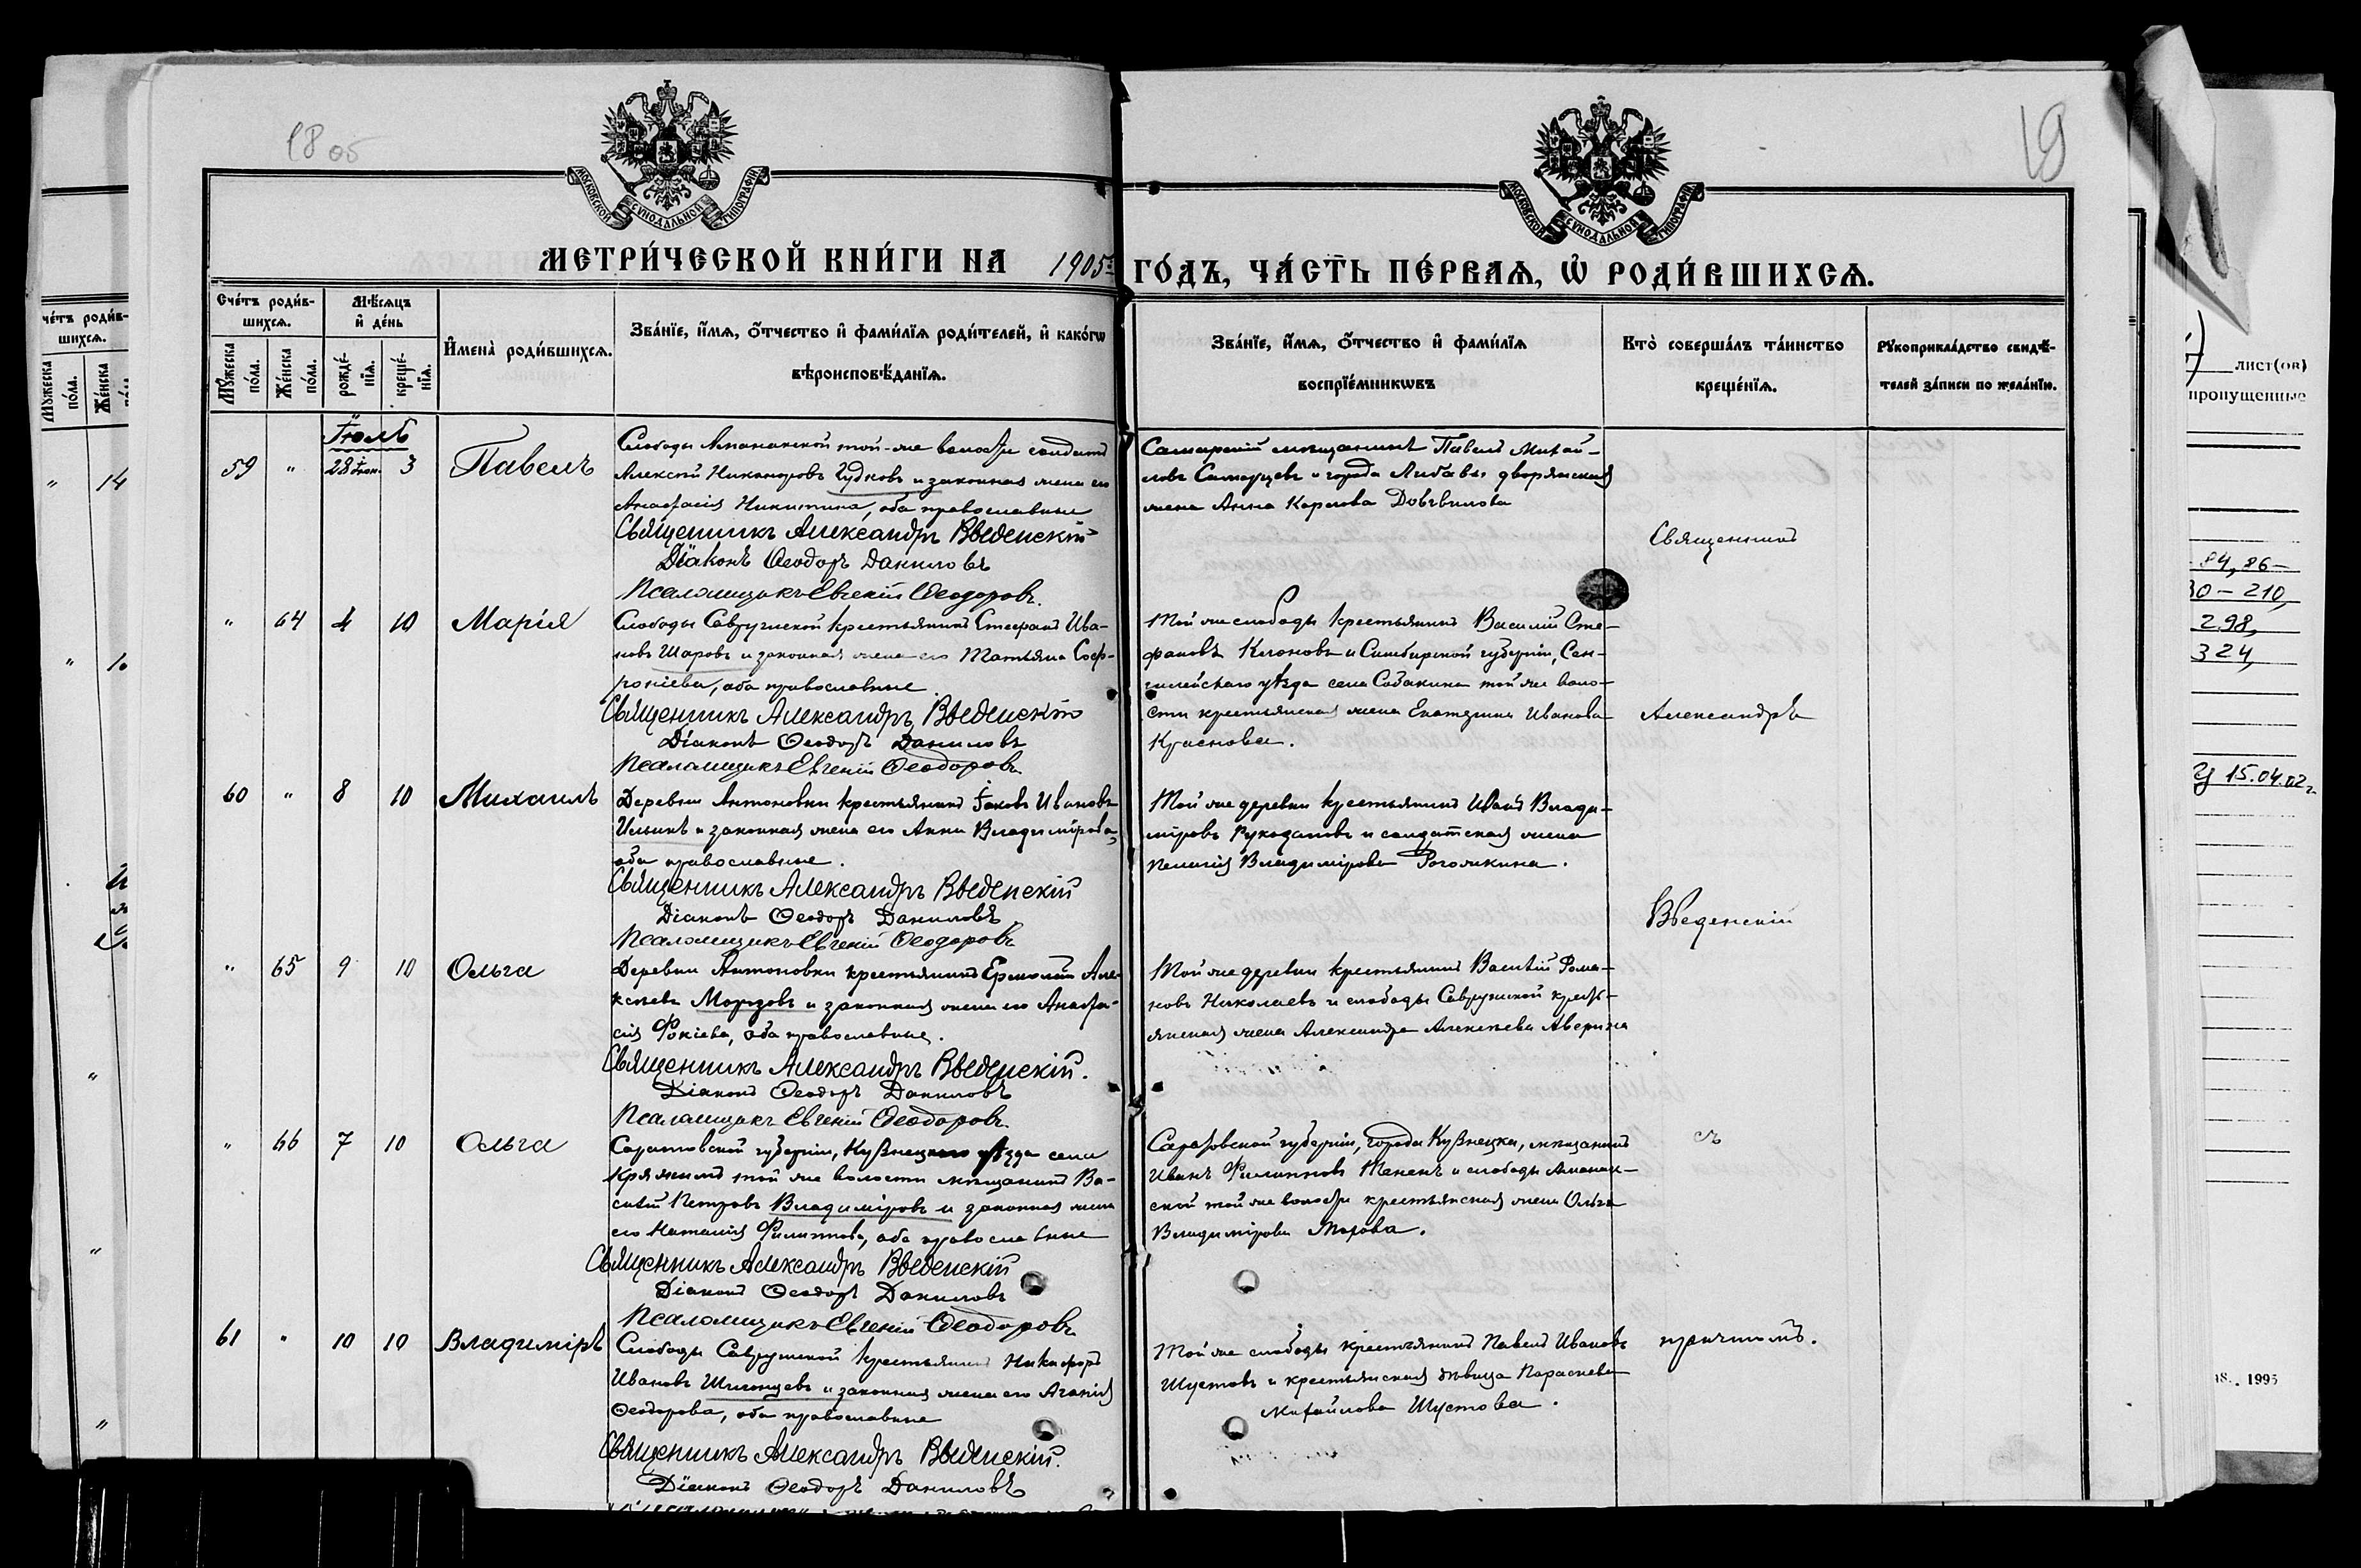 1805
19
МОСКОВСКОЙ СѴНОДАЛЬНОЙ ТИПОГРАФІИ
МОСКОВСКОЙ СѴНОДАЛЬНОЙ ТИПОГРАФІИ
МЕТРИ́ЧЕСКОЙ КНИ́ГИ НА 1905 ГО́ДЪ, ЧА́СТЬ ПЕ́РВАѦ, Ѡ҆ РОДИ́ВШИХСѦ.
Сче́тъ роди́в-
шихсѧ.
Мѣ́сѧцъ
и҆ де́нь
Мꙋ́жеска
по́ла.
Же́нска
по́ла.
рожде́-
нїѧ.
креще́-
нїѧ.
И҆мена̀ роди́вшихсѧ.
Зва́нїе, и҆́мѧ, ѻ҆́тчество и҆ фами́лїѧ роди́телей, и҆ како́гѡ
вѣроисповѣ́данїѧ.
Зва́нїе, и҆́мѧ, ѻ҆́тчество и҆ фами́лїѧ
воспрїе́мникѡвъ
Кто̀ соверша́лъ та́инство
креще́нїѧ.
Рꙋкоприкла́дство свидѣ́-
телей за́писи по жела́нїю.
Іюль
59 " 28 Іюн. 3 Павелъ
Слободы Аманакской той-же волости солдатъ
Алексѣй Никаноровъ Гудковъ и законная жена его
Анастасія Никитина, оба православные
Священникъ Александръ Введенскій
Діаконъ Ѳеодоръ Даниловъ
Псаломщикъ Евгеній Ѳеодоровъ.
Самарскій мѣщанинъ Павелъ Михай-
ловъ Самарцевъ и города Либавы дворянская
жена Анна Карлова
Священникъ
" 64 4 10 Марія
Слободы Саврушской крестьянинъ Стефанъ Ива-
новъ Шаровъ и законная жена его Татьяна Соф-
роніева, оба православные
Священникъ Александръ Введенскій
Діаконъ Ѳеодоръ Даниловъ
Псаломщикъ Евгеній Ѳеодоровъ
Той же слободы крестьянинъ Василій Сте-
фановъ и Симбирской губерніи, Сен-
гилейскаго уѣзда села Собакина той же воло-
сти крестьянская жена Екатерина Иванова
Краснова.
Александръ
60 " 8 10 Михаилъ
Деревни Антоновки крестьянинъ Іаковъ Ивановъ
Ильинъ и законная жена его Анна Владимірова,
оба православные.
Священникъ Александръ Введенскій
Діаконъ Ѳеодоръ Даниловъ
Псаломщикъ Евгеній Ѳеодоровъ
Той же деревни крестьянинъ Иванъ Влади-
міровъ и солдатская жена
Пелагія Владимірова Рогожкина.
Введенскій
" 65 9 10 Ольга
Деревни Антоновки крестьянинъ Ермолай Але-
ксѣевъ Морозовъ и законная жена его Анаста-
сія Фокіева, оба православные.
Священникъ Александръ Введенскій.
Діаконъ Ѳеодоръ Даниловъ
Псаломщикъ Евгеній Ѳеодоровъ.
Той же деревни крестьянинъ Василій Рома-
новъ Николаевъ и слободы Саврушской кресть-
янская жена Александра Алексѣева Аверина
" 66 7 10 Ольга
Саратовской губерніи, Кузнецкаго уѣзда села
Кряжима той же волости мѣщанинъ Ва-
силій Петровъ Владиміровъ и законная жена
его Наталія Филиппова, оба православные
Священникъ Александръ Введенскій
Діаконъ Ѳеодоръ Даниловъ
Псаломщикъ Евгеній Ѳеодоровъ
Саратовской губерніи, города Кузнецка, мѣщанинъ
Иванъ Филипповъ и слободы Аманак-
ской той же волости крестьянская жена Ольга
Владимірова
съ
61 " 10 10 Владиміръ
Слободы Саврушской крестьянинъ Никифоръ
Ивановъ и законная жена его Агапія
Ѳеодорова, оба православные
Священникъ Александръ Введенскій.
Діаконъ Ѳеодоръ Даниловъ
Той же слободы крестьянинъ Павелъ Ивановъ
Шустовъ и крестьянская дѣвица Параскева
Михайлова Шустова.
причтомъ.
че́тъ роди́в-
шихсѧ.
Мꙋ́жеска
по́ла.
Же́нска
" 14
лист(ов)
пропущенные
84, 86–
30 – 210,
298,
324,
15.04.02 г.
1995